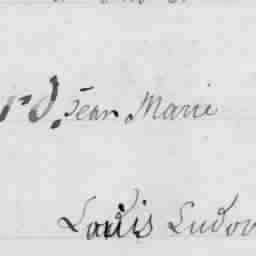 rd. Jean Marie
Louis Ludov